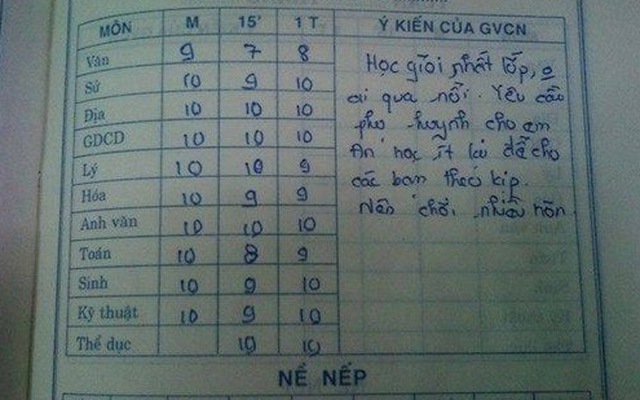 MÔN M 15' 1 T Ý KIẾN CỦA GVCN
Văn 9 7 8
Sử 10 9 10
Địa 10 10 10
GDCD 10 10 10
Lý 10 10 9
Hóa 10 9 9
Anh văn 10 10 10
Toán 10 8 9
Sinh 10 9 10
Kỹ thuật 10 9 10
Thể dục 10 10
Học giỏi nhất lớp, o
ai qua nổi. Yêu cầu
phụ huynh cho em
An học ít lại để cho
các bạn theo kịp.
Nên chơi nhiều hơn
NỀ NẾP